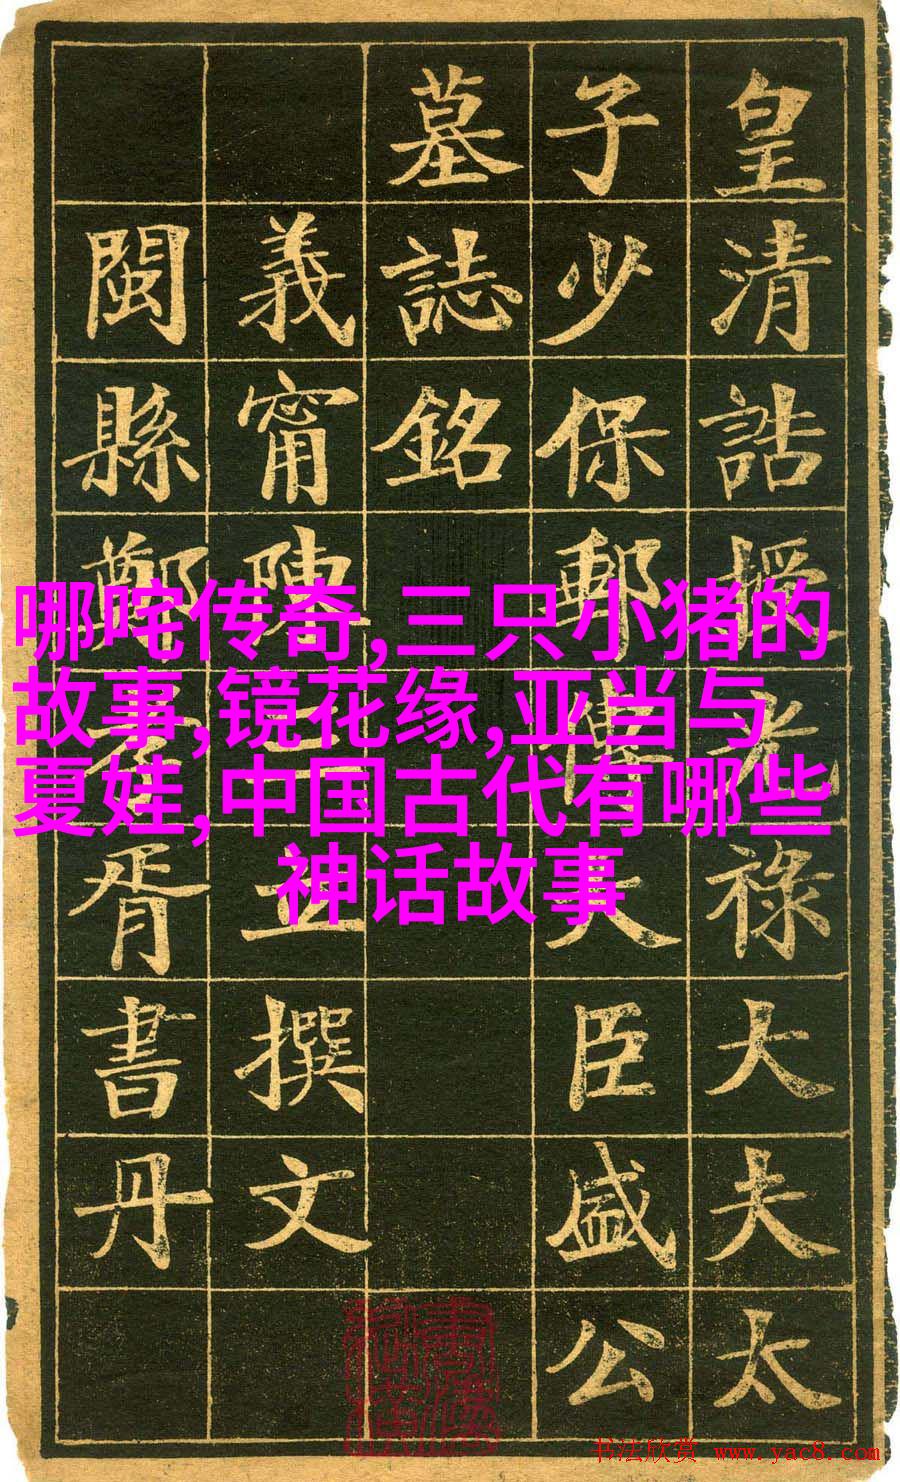 皇清誥授光祿大夫太
子少保郵傳大臣盛公
墓誌銘
義甯陳三立撰文
閩縣鄭孝胥書丹
哪咤传奇,三只小猪的
故事,镜花缘,亚当与
夏娃,中国古代有哪些
神话故事
书法欣赏 www.yac8.com